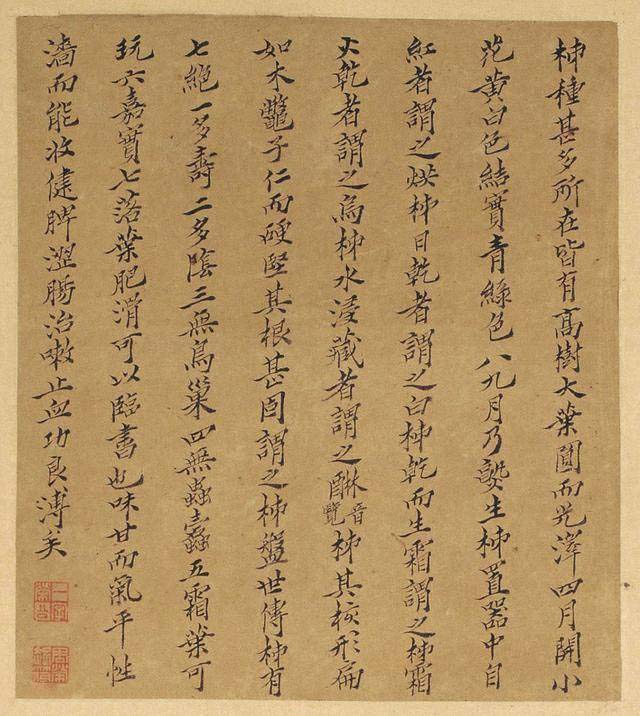 柿種甚多所在皆有高樹大葉圓而光澤四月開小
花黃白色結實青綠色八九月乃熟生柿置器中自
紅者謂之烘柿日乾者謂之白柿乾而生霜謂之柿霜
火乾者謂之烏柿水浸藏者謂之醂音覽柿其核形扁
如木鱉子仁而硬堅其根甚固謂之柿盤世傳柿有
七絕一多壽二多陰三無鳥巢四無蟲蠹五霜葉可
玩六嘉實七落葉肥滑可以臨書也味甘而氣平性
濇而能收健脾澀腸治嗽止血功良溥矣